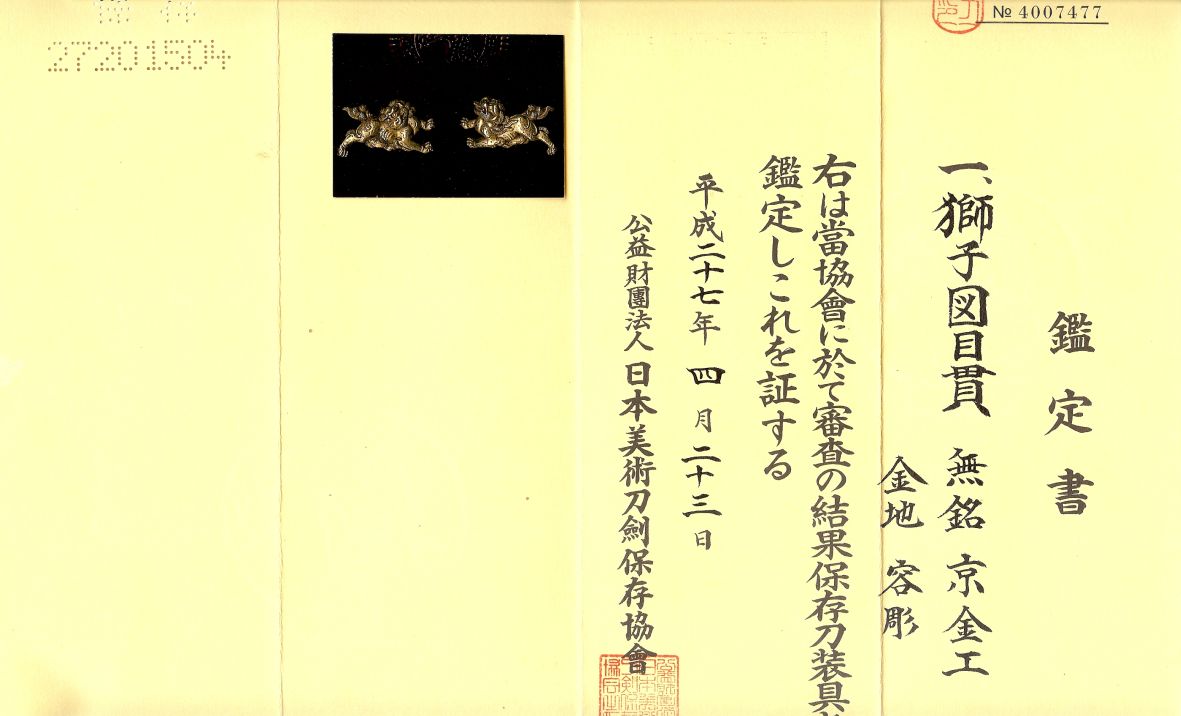 № 4007477
鑑定書
一、獅子図目貫 無銘 京金工
金地 容彫
右は當協會に於て審査の結果保存刀装具
鑑定しこれを証する
平成二十七年 四月二十三日
公益財團法人 日本美術刀劍保存協會
27201504